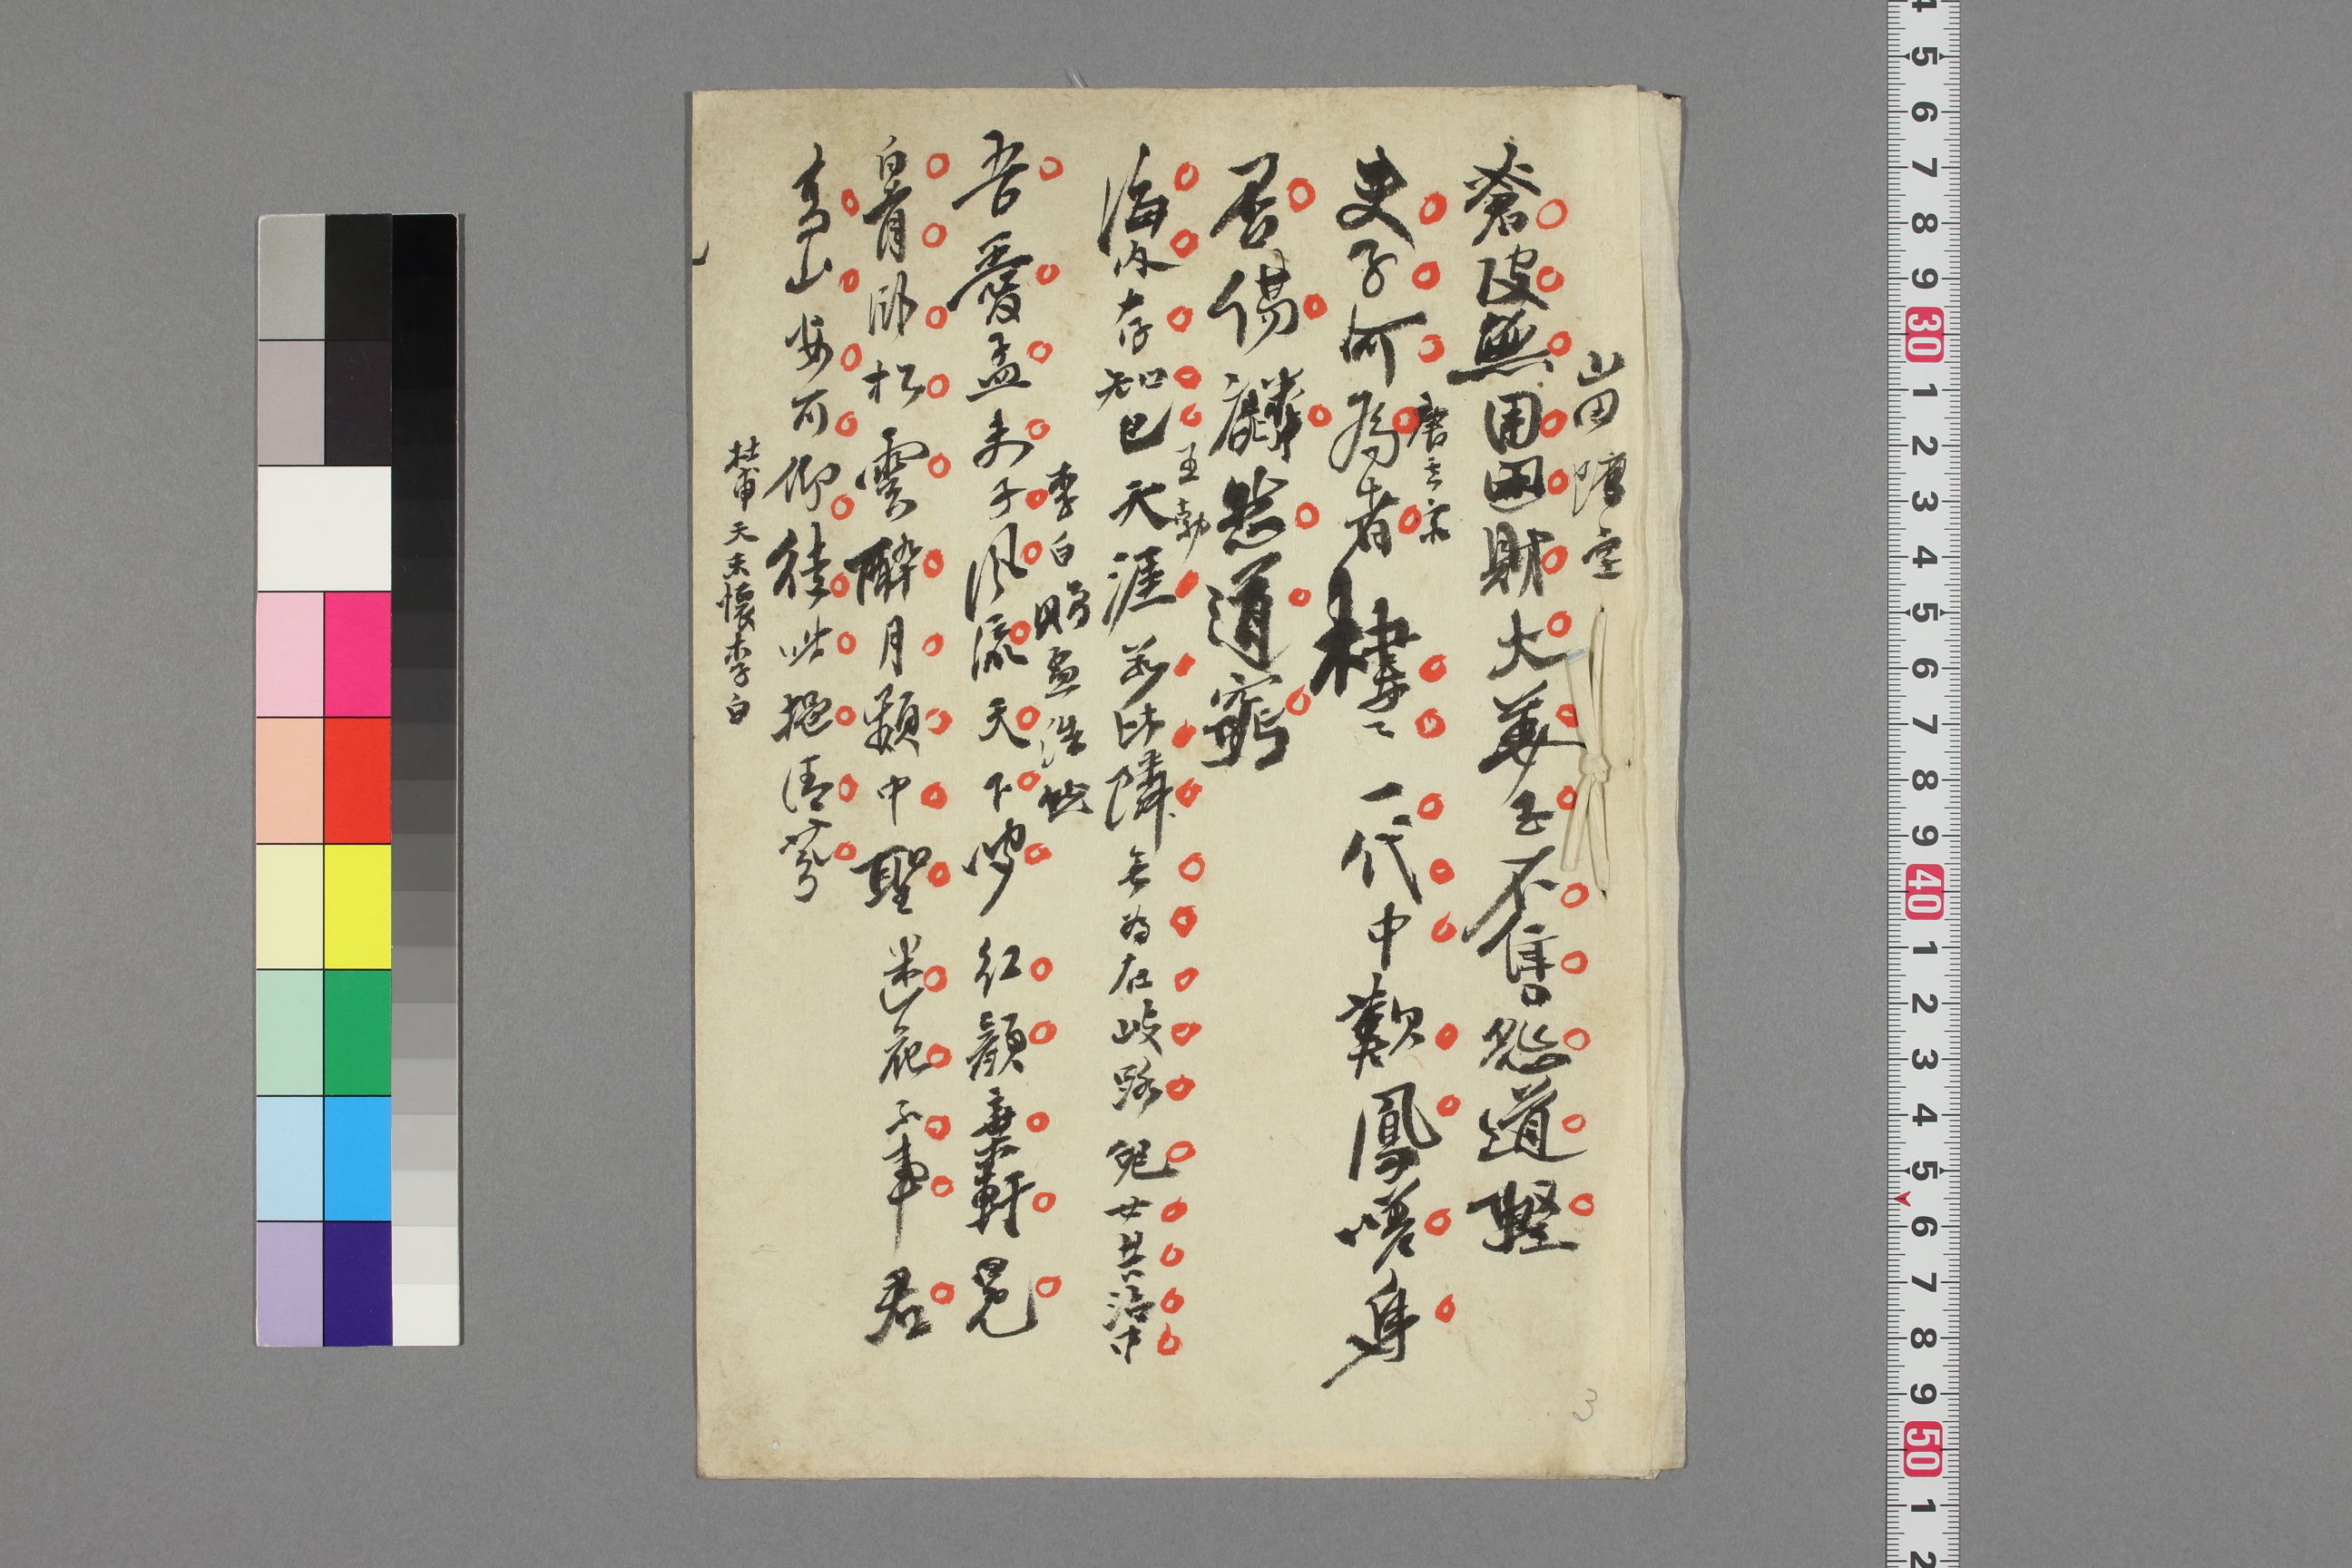 山田
蒼皮無用因財大 美子不售怨道堅
唐玄宗
夫子何為者 棲〻一代中 歎鳳嗟身
否傷麟怨道窮
王勃
海内存知己 天涯若比隣 無為在岐路 兒女共沾巾
李白 贈孟浩然
吾愛孟夫子 風流天下聞 紅顔棄軒冕
白首臥松雲 酔月頻中聖 迷花不事君
高山安可仰 徒此揖清芬
杜甫 天末懐李白
3